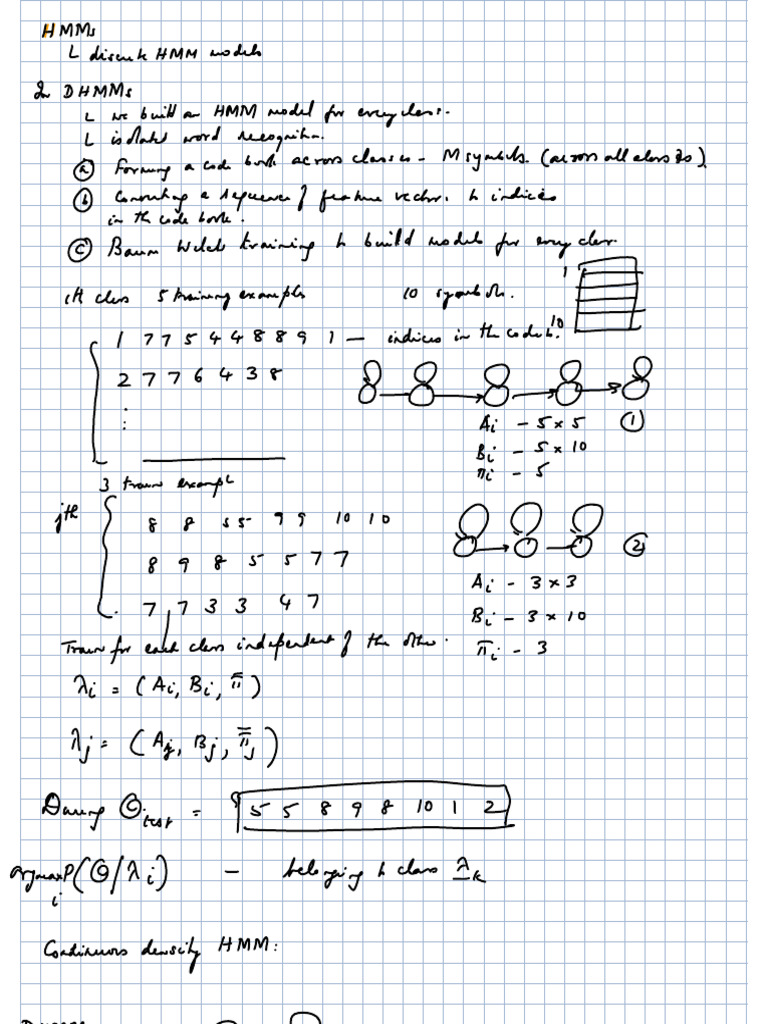 HMMs
L discrete HMM models
In DHMMs
L we build an HMM model for every class.
L isolated word recognition.
(a) Forming a code book across classes - M symbols. (across all classes)
(b) Converting a sequence of feature vectors to indices
in the code book.
(c) Baum Welch training to build models for every class.
ith class 5 training examples 10 symbols. 1
10
1 7 7 5 4 4 8 8 9 1 — indices in the code b.
2 7 7 6 4 3 8
:
:
Ai - 5 x 5 (1)
Bi - 5 x 10
πi - 5
3 train exampl
jth
8 8 5 5 9 9 10 10
8 9 8 5 5 7 7 (2)
7 7 3 3 4 7
Ai - 3 x 3
Bi - 3 x 10
πi - 3
Train for each class independent of the other.
λi = (Ai, Bi, π)
λj = (Aj, Bj, πj)
During Otest = 5 5 8 9 8 10 1 2
argmax P(O/λi) - belonging to class λk
i
Continuous density HMM: